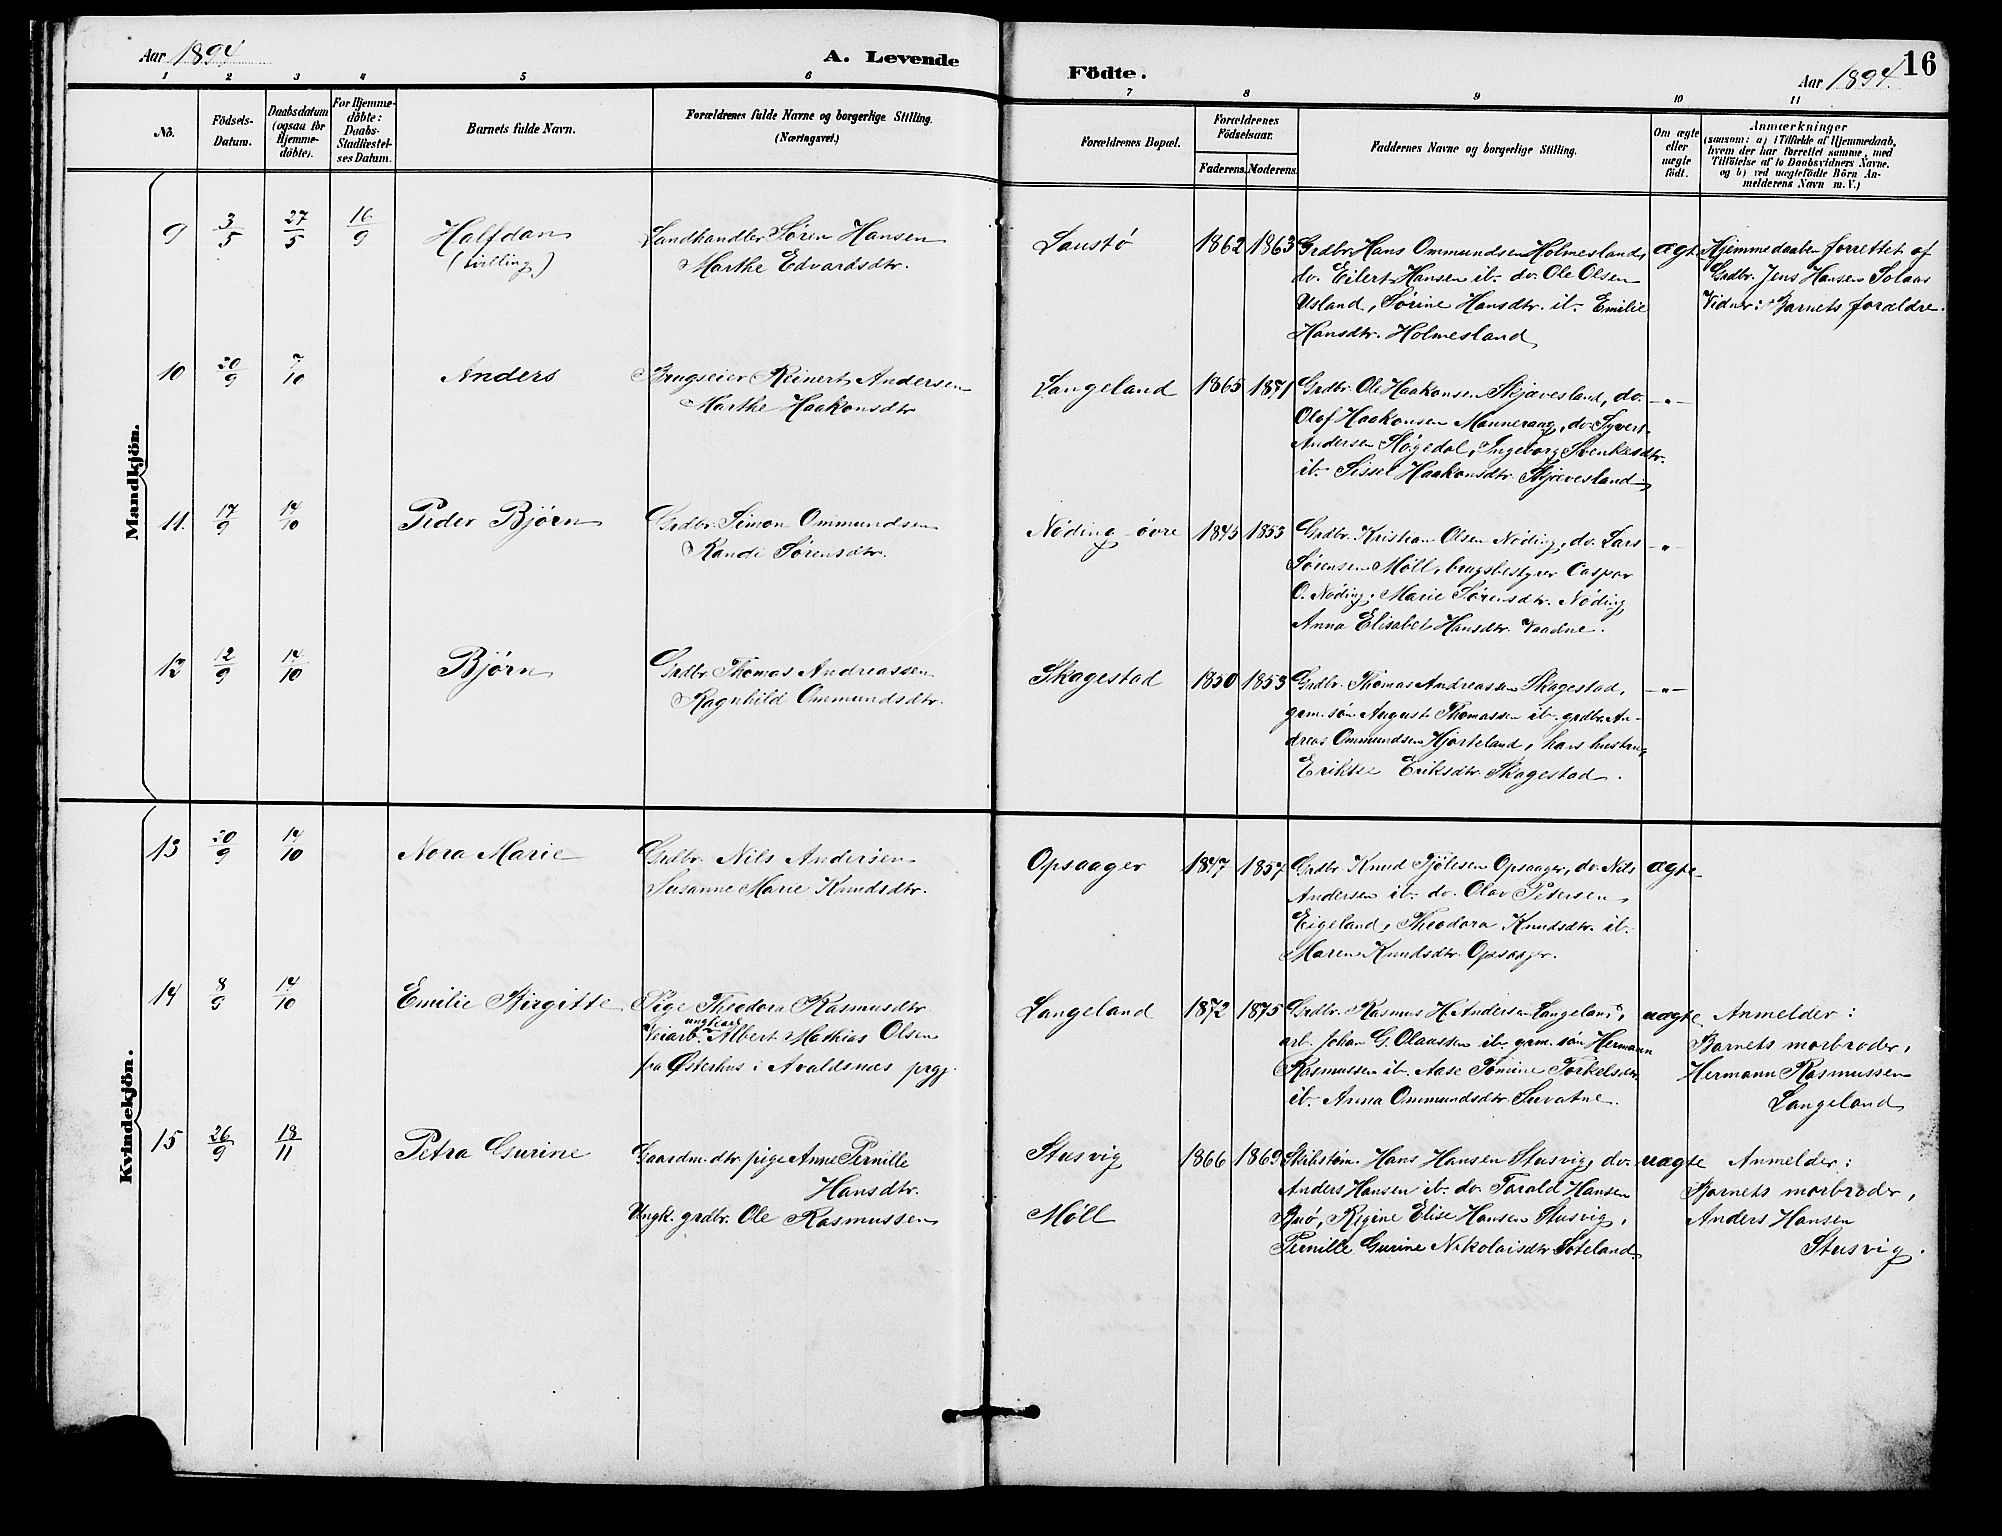 Aar 1894
A. Levende
Födte.
Aar 1894.
16
1 2 3 4 5 6 7 8 9 10 11
No.
Födsels-
Datum.
Daabsdatum
(ogsaa for
Hjemme-
döbte).
For Hjemme-
döbte:
Daabs-
Stadfæstel-
ses Datum.
Barnets fulde Navn.
Forældrenes fulde Navne og borgerlige Stilling.
(Næringsvei.)
Forældrenes Bopæl.
Forældrenes
Födselsaar.
Faderens. Moderens.
Faddernes Navne og borgerlige Stilling.
Om ægte
eller
uægte
födt.
Anmærkninger
(saasom: a) i Tilfælde af Hjemmedaab,
hvem der har forrettet samme, med
Tilföielse af to Daabsvidners Navne.
og b) ved uægtefödte Börn An-
melderens Navn m. V.)
Mandkjön.
9 3/5 27/5 16/9
Halfdan
(tvilling)
Landhandler Søren Hansen
Marthe Edvardsdtr.
Laustø
1862 1863
Grdbr. Hans Ommundsen Holmesland,
do. Eilert Hansen ib. do. Ole Olsen
Usland, Sørine Hansdtr. ib. Emilie
Hansdtr. Holmesland
ægte
Hjemmedaaben forrettet af
Grdbr. Jens Hansen Solaas
Vidner: Barnets forældre.
10 20/9 7/10
Anders
Brugseier Reinert Andersen
Marthe Haakonsdtr
Langeland
1865 1871
Grdbr. Ole Haakonsen Skjævesland, do.
Olaf Haakonsen Mannerang, do. Syvert
Andersen Høgedal, Ingeborg Svenkesdtr.
ib. Sissel Haakonsdtr. Skjævesland
-"-
11. 17/9 14/10
Peder Bjørn
Grdbr. Simon Ommundsen
Randi Sørensdtr.
Nøding øvre
1845 1853
Grdbr. Kristian Olsen Nøding, do. Lars
Sørensen Møll, brugsbestyrer Caspar
O. Nøding, Marie Sørensdtr. Nøding
Anna Elisabet Hansdtr. Vaadne.
-"-
12 12/9 14/10
Bjørn
Grdbr. Thomas Andreassen
Ragnhild Ommundsdtr.
Skogestad
1850 1853
Grdbr. Thomas Andreassen Skagestad,
grm. søn August Thomassen ib. grdbr. An-
dreas Ommundsen Hjorteland, hans hustru
Eriksdtr. Skagestad.
-"-
Kvindekjön.
13 20/9 14/10
Nora Marie
Grdbr. Nils Andersen
Susanne Marie Knudsdtr.
Opsaager
1847 1857
Grdbr. Knud Tjølesen Opsaager, do. Nils
Andersen ib. do. Olav Petersen
Eigeland, Theodora Knudsdtr. ib.
Maren Knudsdtr. Opsaager.
ægte
14 8/9 14/10
Emilie Birgitte
Pige Theodora Rasmusdtr.
ungkarl
Veiarb. Albert Mathias Olsen
fra Østerhus i Avaldsnæs prgj.
Langeland
1872 1875
Grdbr. Rasmus H. Andersen Langeland,
arb. Johan G. Olaussen ib. grm. søn Hermann
Rasmussen ib. Aase Tomine Torkelsdtr.
ib. Anna Ommundsdtr.
uægte
Anmelder:
Barnets morbroder,
Hermann Rasmussen
Langeland
15 26/9 18/11
Petra Gurine
Gaardm. dtr. pige Anne Pernille
Hansdtr.
Ungk. grdbr. Ole Rasmussen
Stusvig
Møll
1866 1869
Skibstøm. Hans Hansen Stusvig, do.
Anders Hansen ib. do. Torald Hansen
Buø, Regine Elise Hansen Stusvig,
Pernille Gurine Nikolaisdtr. Soteland
uægte
Anmelder:
Barnets morbroder,
Anders Hansen
Stusvig.